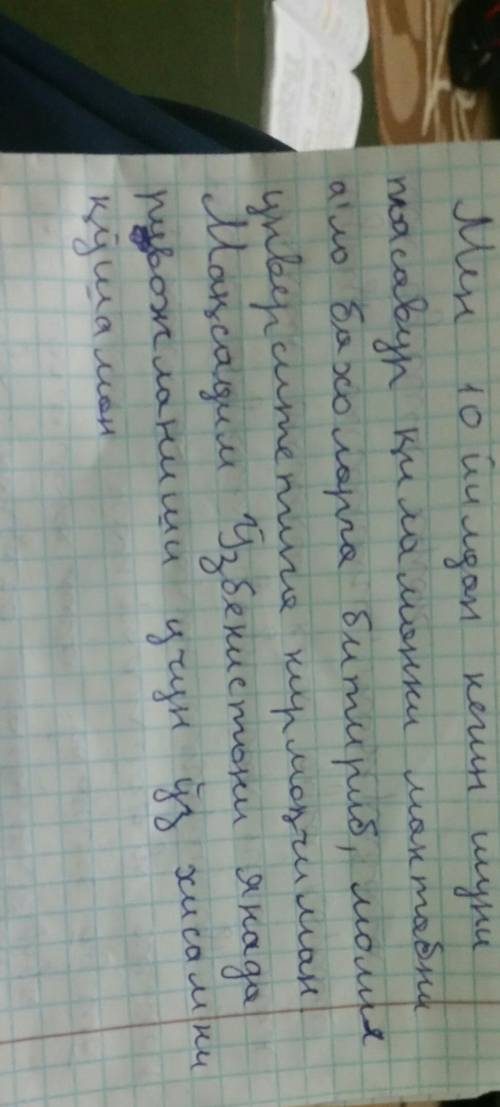 Мен 10 йилдан кегин шуни
тасаввур қиламанки мактабни
аъло бахоларга битириб, молия
унверситетига кирмоқчиман
Мақсадим Ўзбекистони янада
ривожланиши учун ўз хисамни
қўшаман